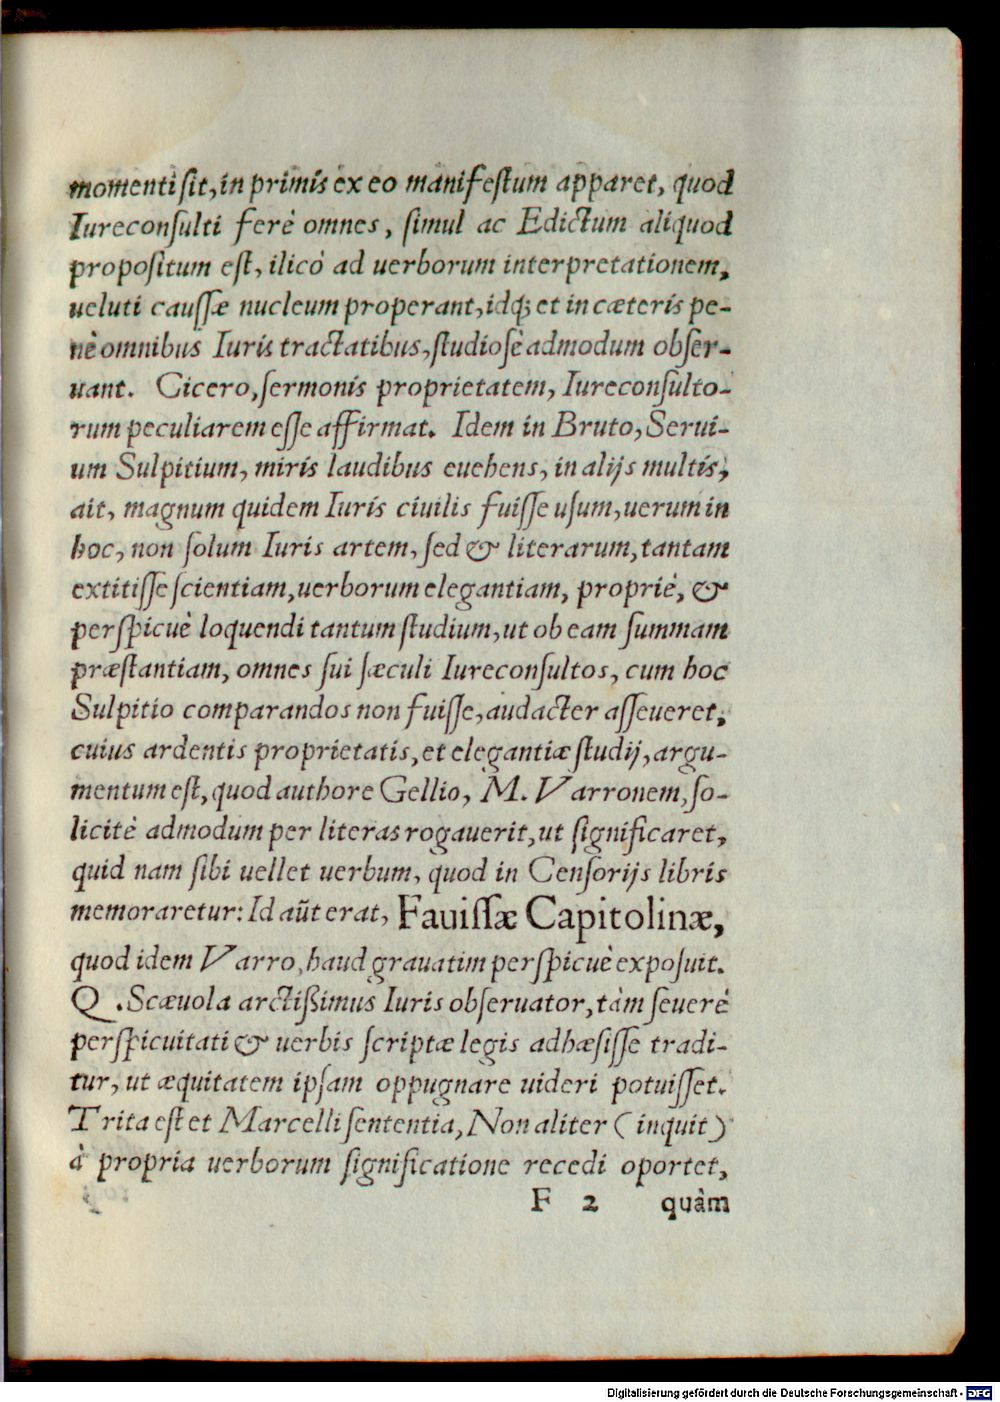 momenti ſit, in primis ex eo manifeſtum apparet, quod
Iureconſulti ferè omnes, ſimul ac Edictum aliquod
propoſitum eſt, ilicò ad uerborum interpretationem,
ueluti cauſſæ nucleum properant, idq́; et in cæteris pe-
nè omnibus Iuris tractatibus, ſtudioſè admodum obſer-
uant. Cicero, ſermonis proprietatem, Iureconſulto-
rum peculiarem eſſe affirmat. Idem in Bruto, Serui-
um Sulpitium, miris laudibus euehens, in alijs multis,
ait, magnum quidem Iuris ciuilis fuiſſe uſum, uerum in
hoc, non ſolum Iuris artem, ſed & literarum, tantam
extitiſſe ſcientiam, uerborum elegantiam, propriè, &
perſpicuè loquendi tantum ſtudium, ut ob eam ſummam
præſtantiam, omnes ſui ſæculi Iureconſultos, cum hoc
Sulpitio comparandos non fuiſſe, audacter aſſeueret,
cuius ardentis proprietatis, et elegantiæ ſtudij, argu-
mentum eſt, quod authore Gellio, M. Varronem, ſo-
licitè admodum per literas rogauerit, ut ſignificaret,
quid nam ſibi uellet uerbum, quod in Cenſorijs libris
memoraretur: Id aūt erat, Fauiſſæ Capitolinæ,
quod idem Varro, haud grauatim perſpicuè expoſuit.
Q. Scæuola arctißimus Iuris obſeruator, tàm ſeuerè
perſpicuitati & uerbis ſcriptæ legis adhæſiſſe tradi-
tur, ut æquitatem ipſam oppugnare uideri potuiſſet.
Trita eſt et Marcelli ſententia, Non aliter (inquit)
à propria uerborum ſignificatione recedi oportet,
F 2 quàm
Digitalisierung gefördert durch die Deutsche Forschungsgemeinschaft - DFG